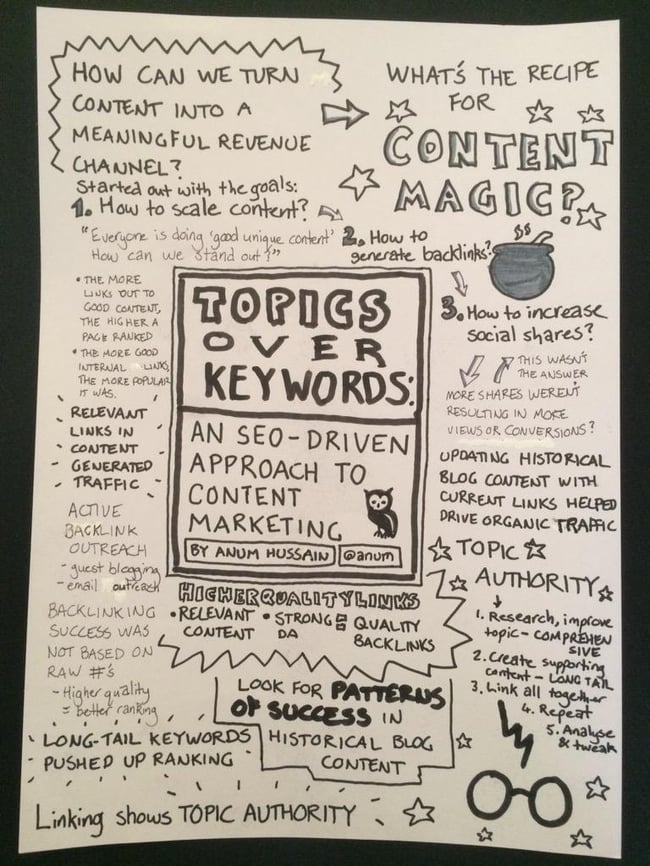 HOW CAN WE TURN
CONTENT INTO A
MEANINGFUL REVENUE
CHANNEL?
WHAT'S THE RECIPE
FOR
CONTENT
MAGIC?
Started out with the goals:
1. How to scale content?
"Everyone is doing 'good unique content'
How can we stand out?"
2. How to
generate backlinks?
$$
3. How to increase
social shares?
THIS WASN'T
THE ANSWER
MORE SHARES WEREN'T
RESULTING IN MORE
VIEWS OR CONVERSIONS?
• THE MORE
LINKS OUT TO
GOOD CONTENT,
THE HIGHER A
PAGE RANKED
• THE MORE GOOD
INTERNAL LINKS,
THE MORE POPULAR
IT WAS.
RELEVANT
LINKS IN
CONTENT
GENERATED
TRAFFIC
TOPICS
OVER
KEYWORDS:
AN SEO-DRIVEN
APPROACH TO
CONTENT
MARKETING
BY ANUM HUSSAIN
@anum
UPDATING HISTORICAL
BLOG CONTENT WITH
CURRENT LINKS HELPED
DRIVE ORGANIC TRAFFIC
ACTIVE
BACKLINK
OUTREACH
- guest blogging
- email outreach
BACKLINKING
SUCCESS WAS
NOT BASED ON
RAW #'S
- Higher quality
= better ranking
HIGHER QUALITY LINKS
• RELEVANT
CONTENT
• STRONG
DA
= QUALITY
BACKLINKS
TOPIC
AUTHORITY
1. Research, improve
topic - COMPREHEN
SIVE
2. Create supporting
content - LONG TAIL
3. Link all together
4. Repeat
5. Analyse
& tweak
LOOK FOR PATTERNS
OF SUCCESS IN
HISTORICAL BLOG
CONTENT
LONG-TAIL KEYWORDS
PUSHED UP RANKING
Linking shows TOPIC AUTHORITY